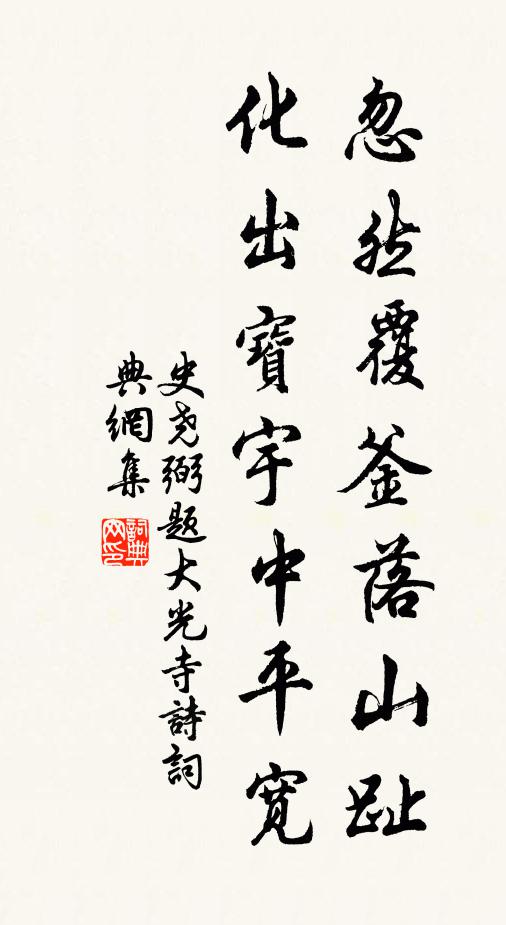 忽然覆釜落山趾
化出寶宇中平寬
史堯弼題大光寺詩詞
典網集
詞典網印